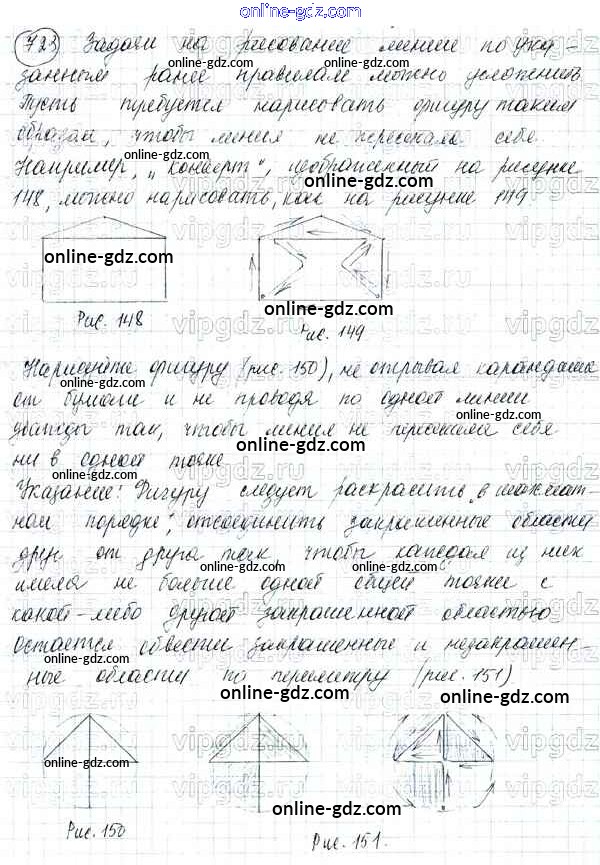 online-gdz.com
723 Задачи на рисование линие по ука-
занным ранее правилам можно усложнить.
Пусть требуется нарисовать фигуру таким
образом, чтобы линия не пересекала себе.
online-gdz.com
Например, "конверт", изображенный на рисунке
148, можно нарисовать, как на рисунке 149
online-gdz.com
online-gdz.com
online-gdz.com
Рис. 148
Рис. 149
Нарисуйте фигуру (рис. 150), не отрывая карандаша
online-gdz.com
от бумаги и не проводя по одной линии
online-gdz.com
дважды так, чтобы линия не пересекала себя
online-gdz.com
ни в одной точке.
Указание: Фигуру следует раскрасить "в шахмат-
ном порядке", отсоединить закрашенные области
online-gdz.com
друг от друга так чтобы каждая из них
online-gdz.com
имела не больше одной общей точки с
какой-либо другой закрашенной областью
online-gdz.com
Остается обвести закрашенные и незакрашен-
online-gdz.com
ные области по периметру (рис. 151)
online-gdz.com
online-gdz.com
online-gdz.com
online-gdz.com
online-gdz.com
online-gdz.com
Рис. 150
Рис. 151.